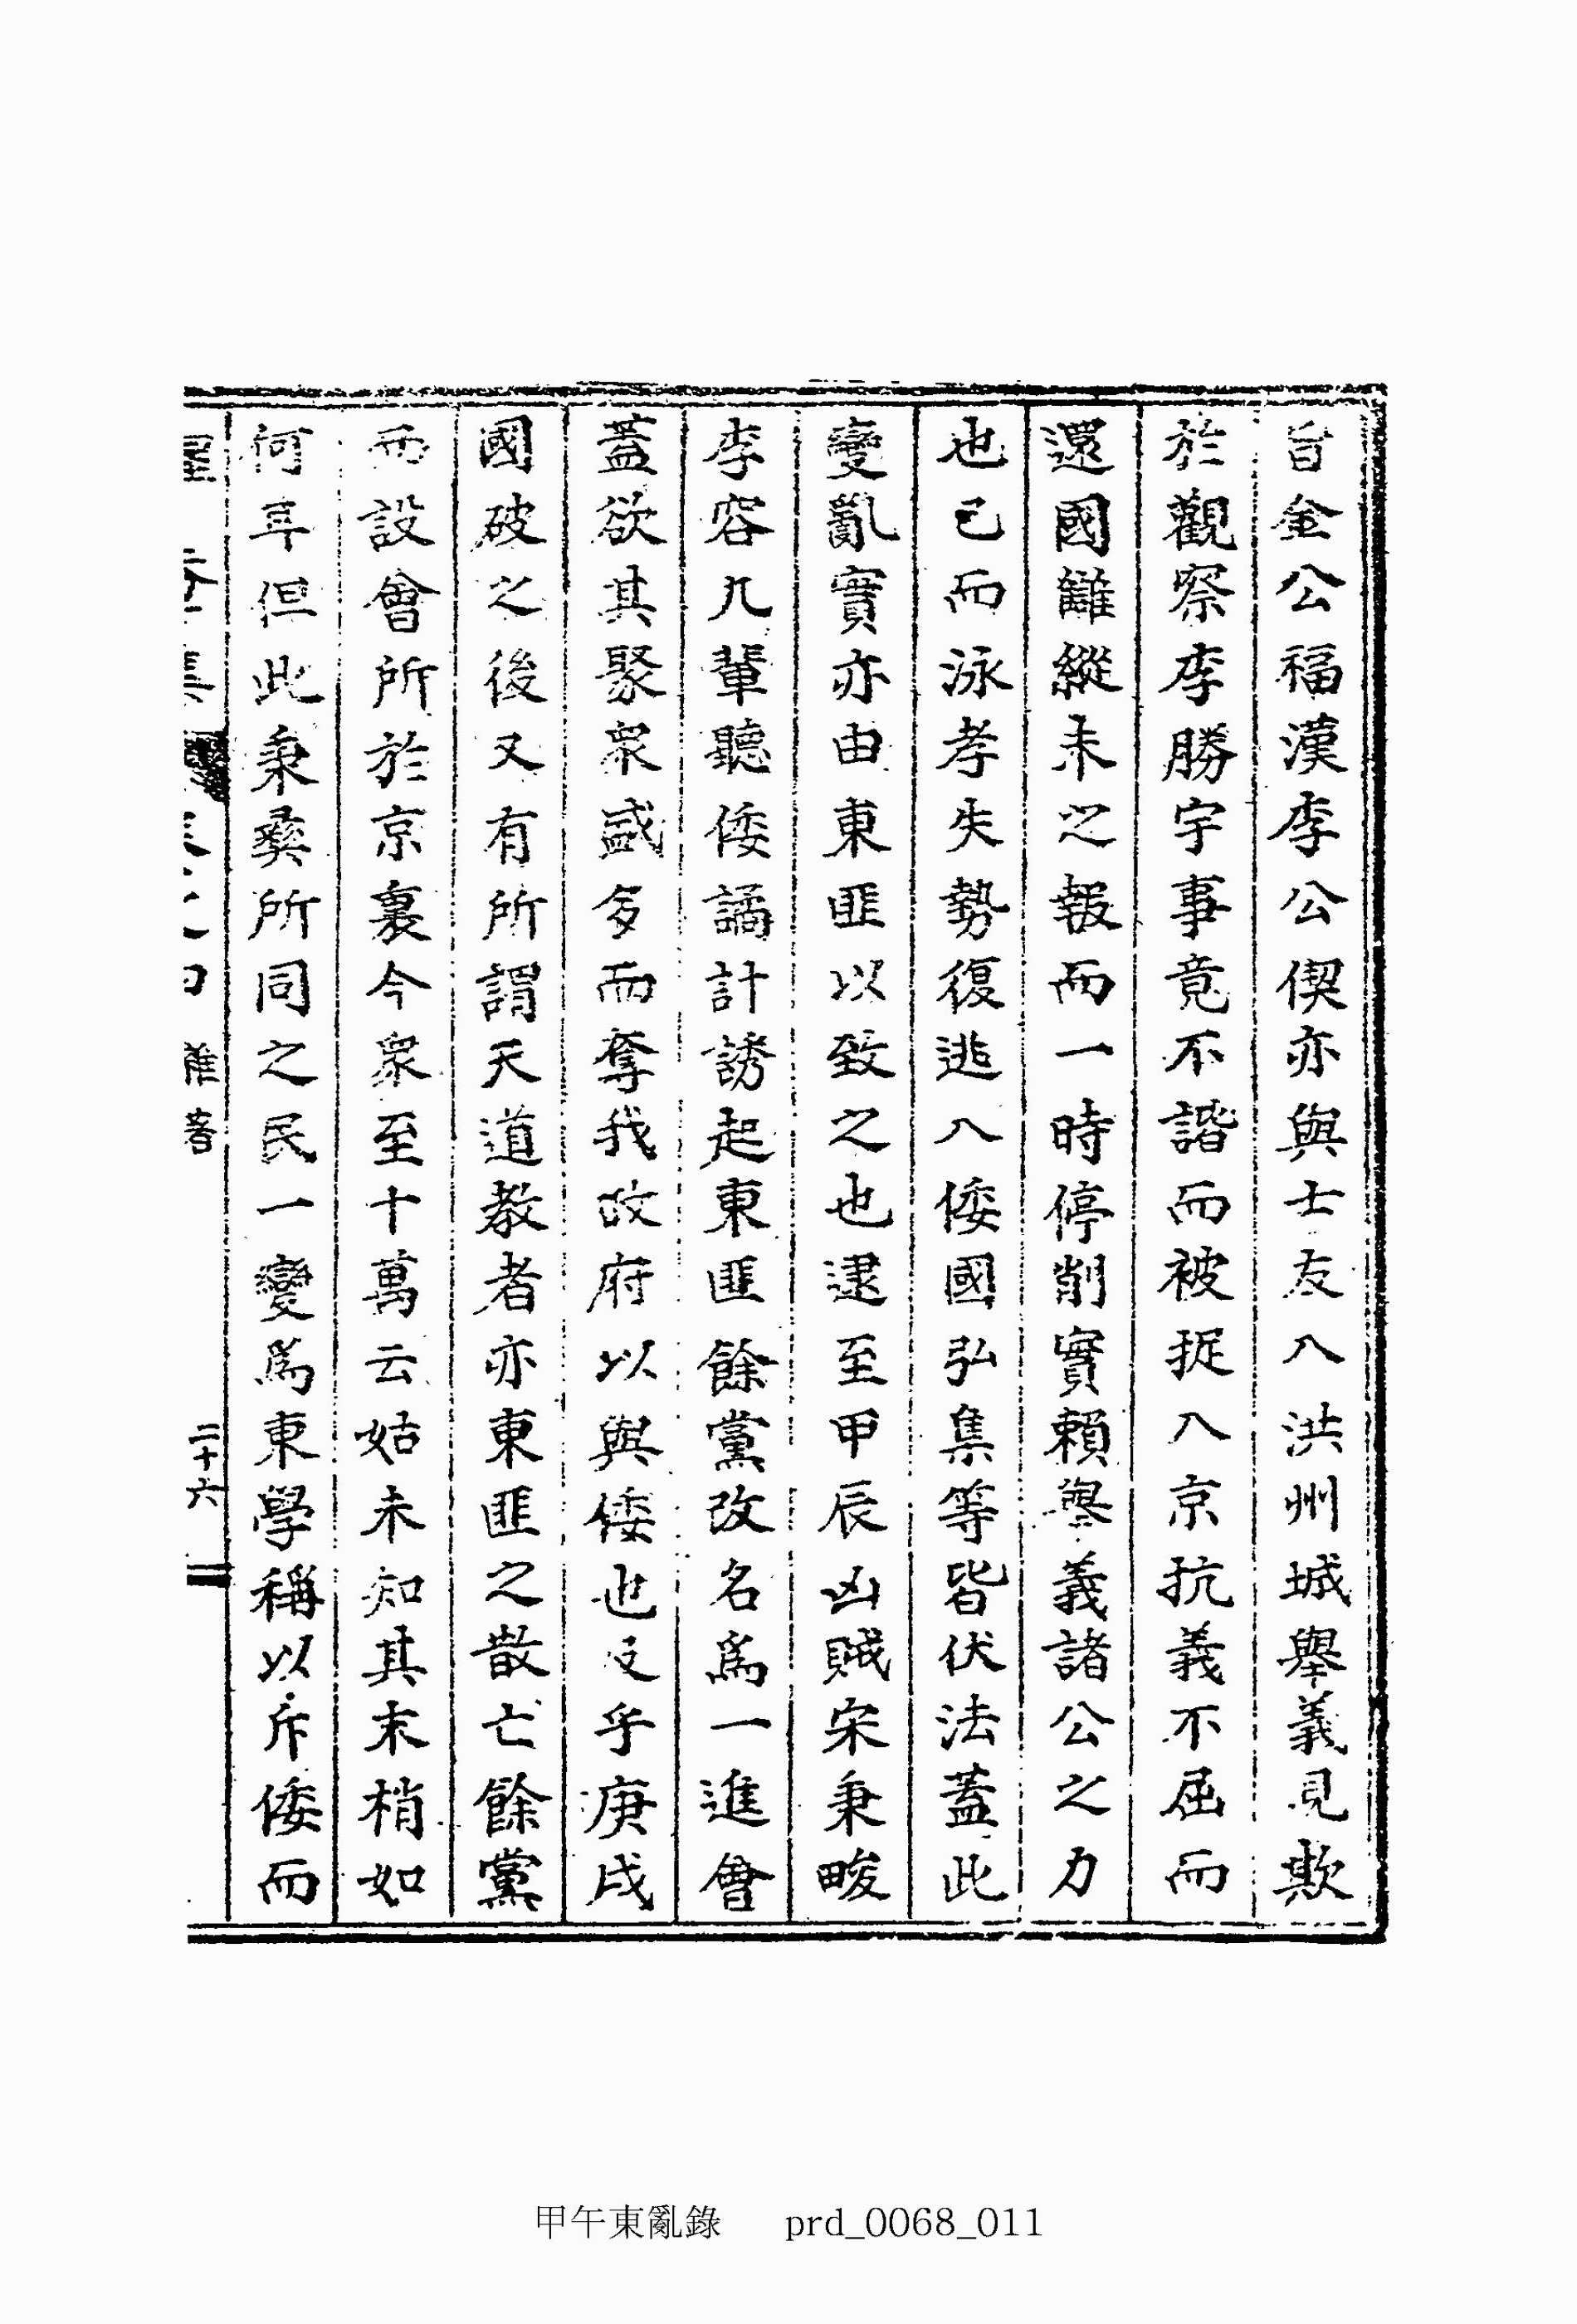 旨金公福漢李公偰亦與士友入洪州城舉義見欺
於觀察李勝宇事竟不諧而被捉入京抗義不屈而
還國讎縱未之報而一時停削實賴舉義諸公之力
也已而泳孝失勢復逃入倭國弘集等皆伏法蓋此
變亂實亦由東匪以致之也逮至甲辰凶賊宋秉畯
李容九輩聽倭譎計誘起東匪餘黨改名爲一進會
蓋欲其聚衆盛多而奪我政府以與倭也及乎庚戌
國破之後又有所謂天道敎者亦東匪之散亡餘黨
而設會所於京裏今衆至十萬云姑未知其末梢如
何耳但此秉彝所同之民一變爲東學稱以斥倭而
雜著
二十六
甲午東亂錄 prd_0068_011